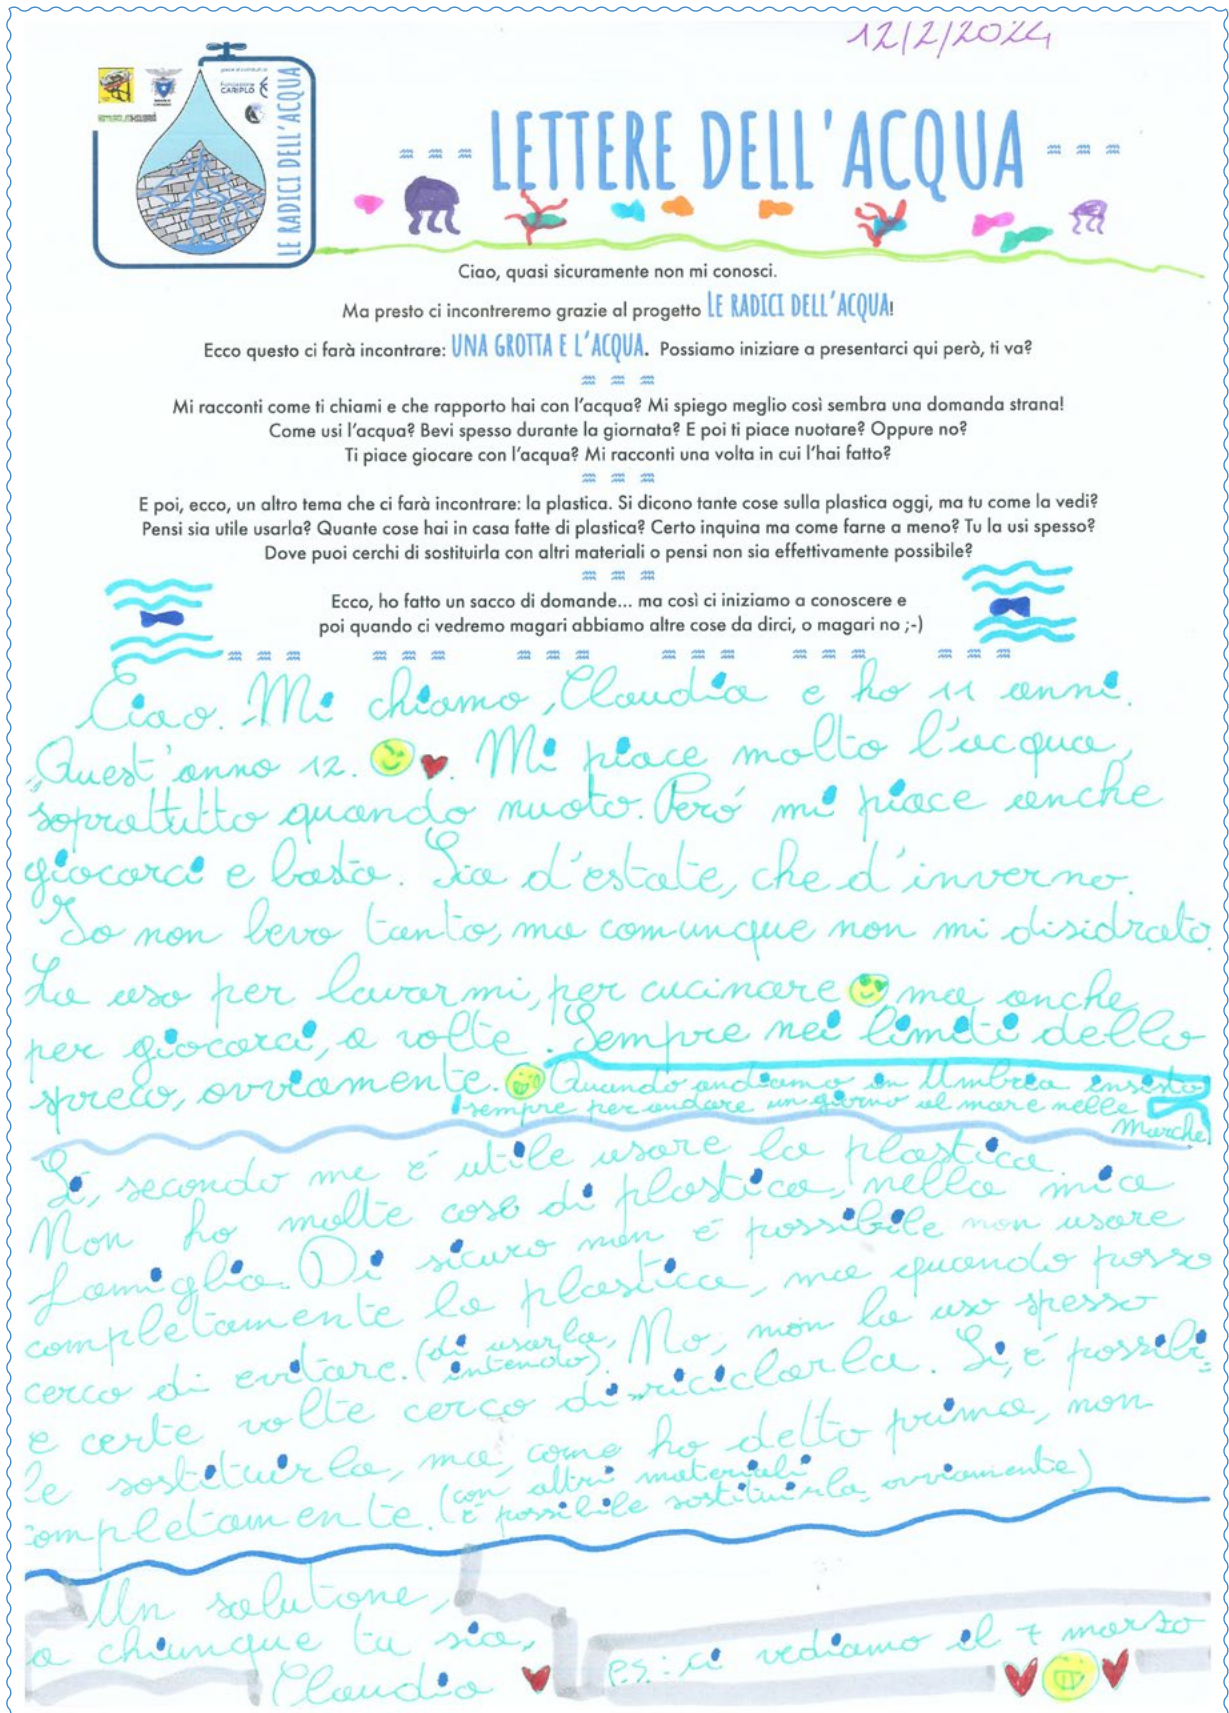 12/2/2024
Fondazione
CARIPLO
LE RADICI DELL'ACQUA
LETTERE DELL'ACQUA
Ciao, quasi sicuramente non mi conosci.
Ma presto ci incontreremo grazie al progetto LE RADICI DELL'ACQUA!
Ecco questo ci farà incontrare: UNA GROTTA E L'ACQUA. Possiamo iniziare a presentarci qui però, ti va?
Mi racconti come ti chiami e che rapporto hai con l'acqua? Mi spiego meglio così sembra una domanda strana!
Come usi l'acqua? Bevi spesso durante la giornata? E poi ti piace nuotare? Oppure no?
Ti piace giocare con l'acqua? Mi racconti una volta in cui l'hai fatto?
E poi, ecco, un altro tema che ci farà incontrare: la plastica. Si dicono tante cose sulla plastica oggi, ma tu come la vedi?
Pensi sia utile usarla? Quante cose hai in casa fatte di plastica? Certo inquina ma come farne a meno? Tu la usi spesso?
Dove puoi cerchi di sostituirla con altri materiali o pensi non sia effettivamente possibile?
Ecco, ho fatto un sacco di domande... ma così ci iniziamo a conoscere e
poi quando ci vedremo magari abbiamo altre cose da dirci, o magari no ;-)
Ciao. Mi chiamo Claudia e ho 11 anni.
Quest'anno 12. Mi piace molto l'acqua,
sopratutto quando nuoto. Peró mi piace anche
giocarci e basta. Sia d'estate, che d'inverno.
Io non bevo tanto, ma comunque non mi disidrato.
La uso per lavarmi, per cucinare ma anche
per giocarci, a volte. Sempre nei limiti dello
spreco, ovviamente. Quando andiamo in Umbria insisto
sempre per andare un giorno al mare nelle
Marche
Sí, secondo me é utile usare la plastica.
Non ho molte cose di plastica, nella mia
famiglia. Di sicuro non é possibile non usare
completamente la plastica, ma quando posso
cerco di evitare. (di usarla, intendo). No, non la uso spesso
e certe volte cerco di riciclarla. Sí, é possibi=
le sostituirla, ma, come ho detto prima, non
completamente. (con altri materiali
é possibile sostituirla, ovviamente)
Un salutone,
a chiunque tu sia,
Claudia
P.S.: ci vediamo il 7 marzo